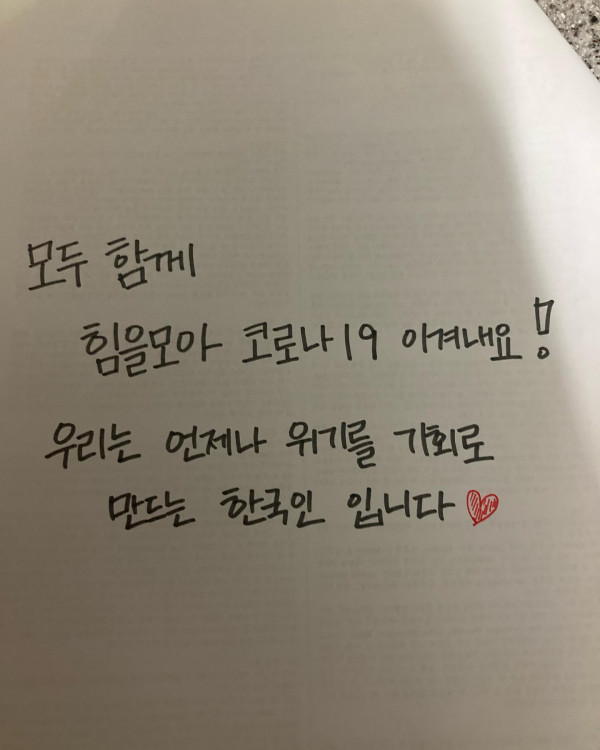 모두 함께
힘을모아 코로나19 이겨내요!
우리는 언제나 위기를 기회로
만드는 한국인 입니다